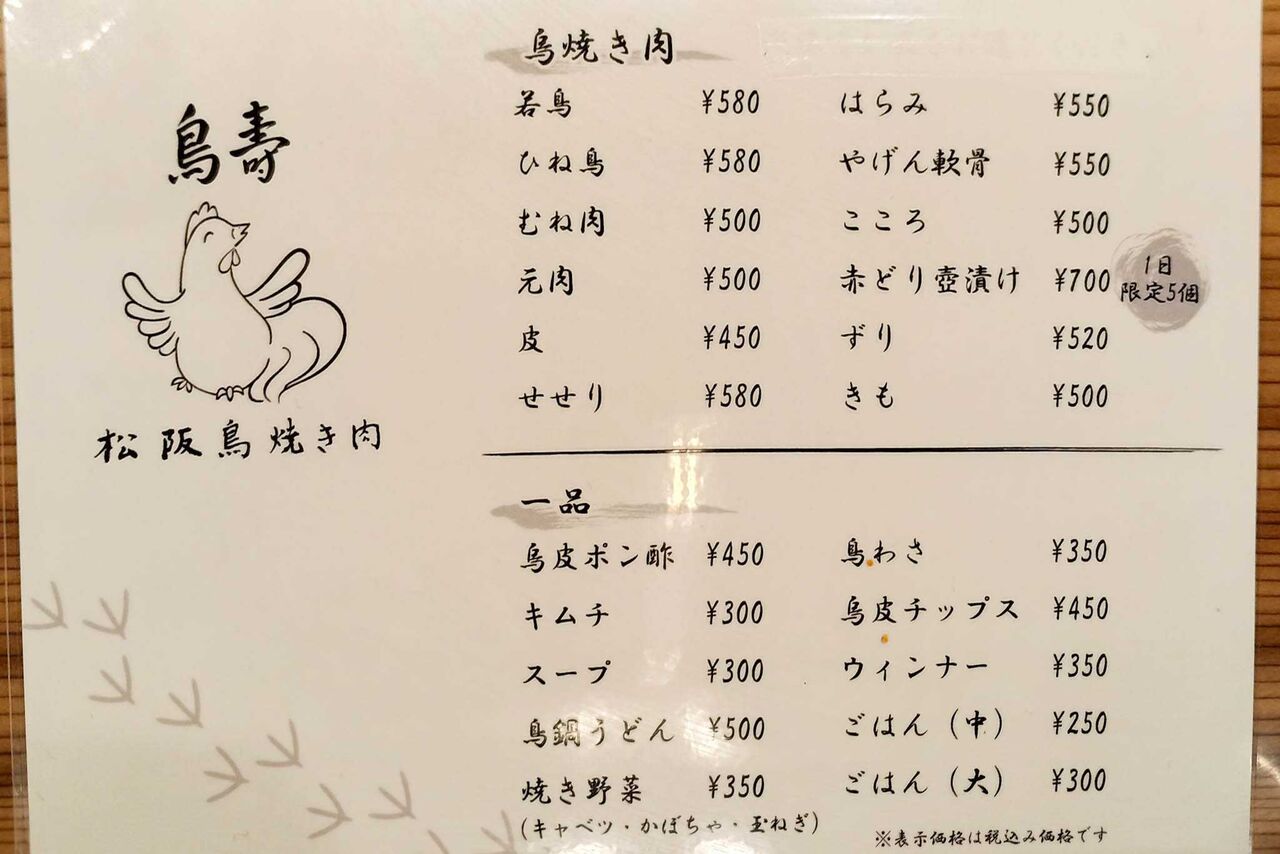 鳥壽
松阪鳥焼き肉
鳥焼き肉
若鳥 ¥580
ひね鳥 ¥580
むね肉 ¥500
元肉 ¥500
皮 ¥450
せせり ¥580
はらみ ¥550
やげん軟骨 ¥550
こころ ¥500
赤どり壺漬け ¥700
1日
限定5個
ずり ¥520
きも ¥500
一品
鳥皮ポン酢 ¥450
キムチ ¥300
スープ ¥300
鳥鍋うどん ¥500
焼き野菜 ¥350
(キャベツ・かぼちゃ・玉ねぎ)
鳥わさ ¥350
鳥皮チップス ¥450
ウィンナー ¥350
ごはん(中) ¥250
ごはん(大) ¥300
※表示価格は税込み価格です